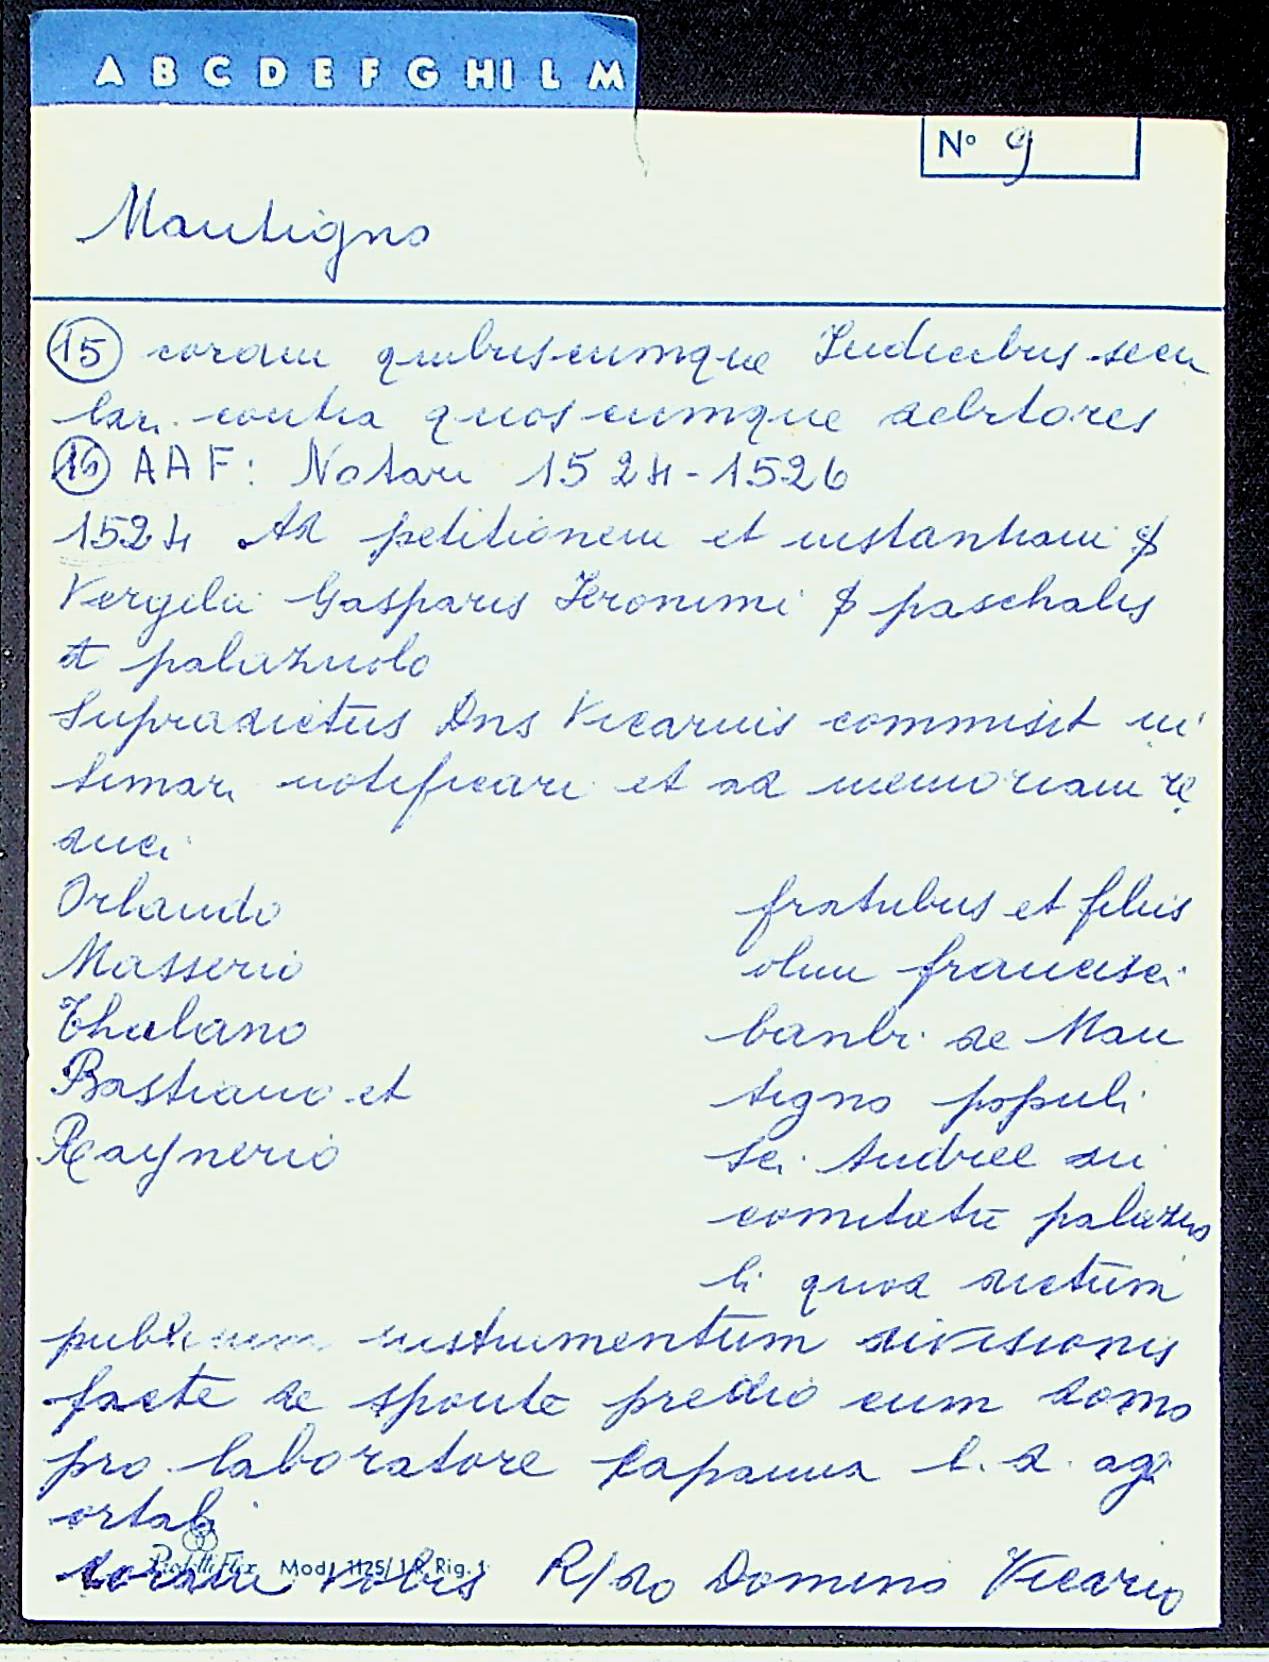 A B C D E F G HI L M
N° 9
Mantigno
(15) coram quibuscumque Iudicibus secu
lari contra quoscumque debitores
(16) AAF: Notari 1524-1526
1524 Ad petitionem et instantiam
Vergilii Gasparis Ieronimi paschalis
palazuolo
Supradictus Dns Vicarius commisit in
timari notificari et ad memoriam re
duci
Orlando fratribus et filiis
Masserio olim francisci
Thalano banbi de Man
Bastiano et tigno populi
Raynerio sci Andree di
comitatu palazuo
li quod dictum
publicum instrumentum divisionis
facte de sponte predio cum domo
pro laboratore capanna l. d. agi
ortali
coram vobis R/do Domino Vicario
Mod. 1125/1R Rig. 1